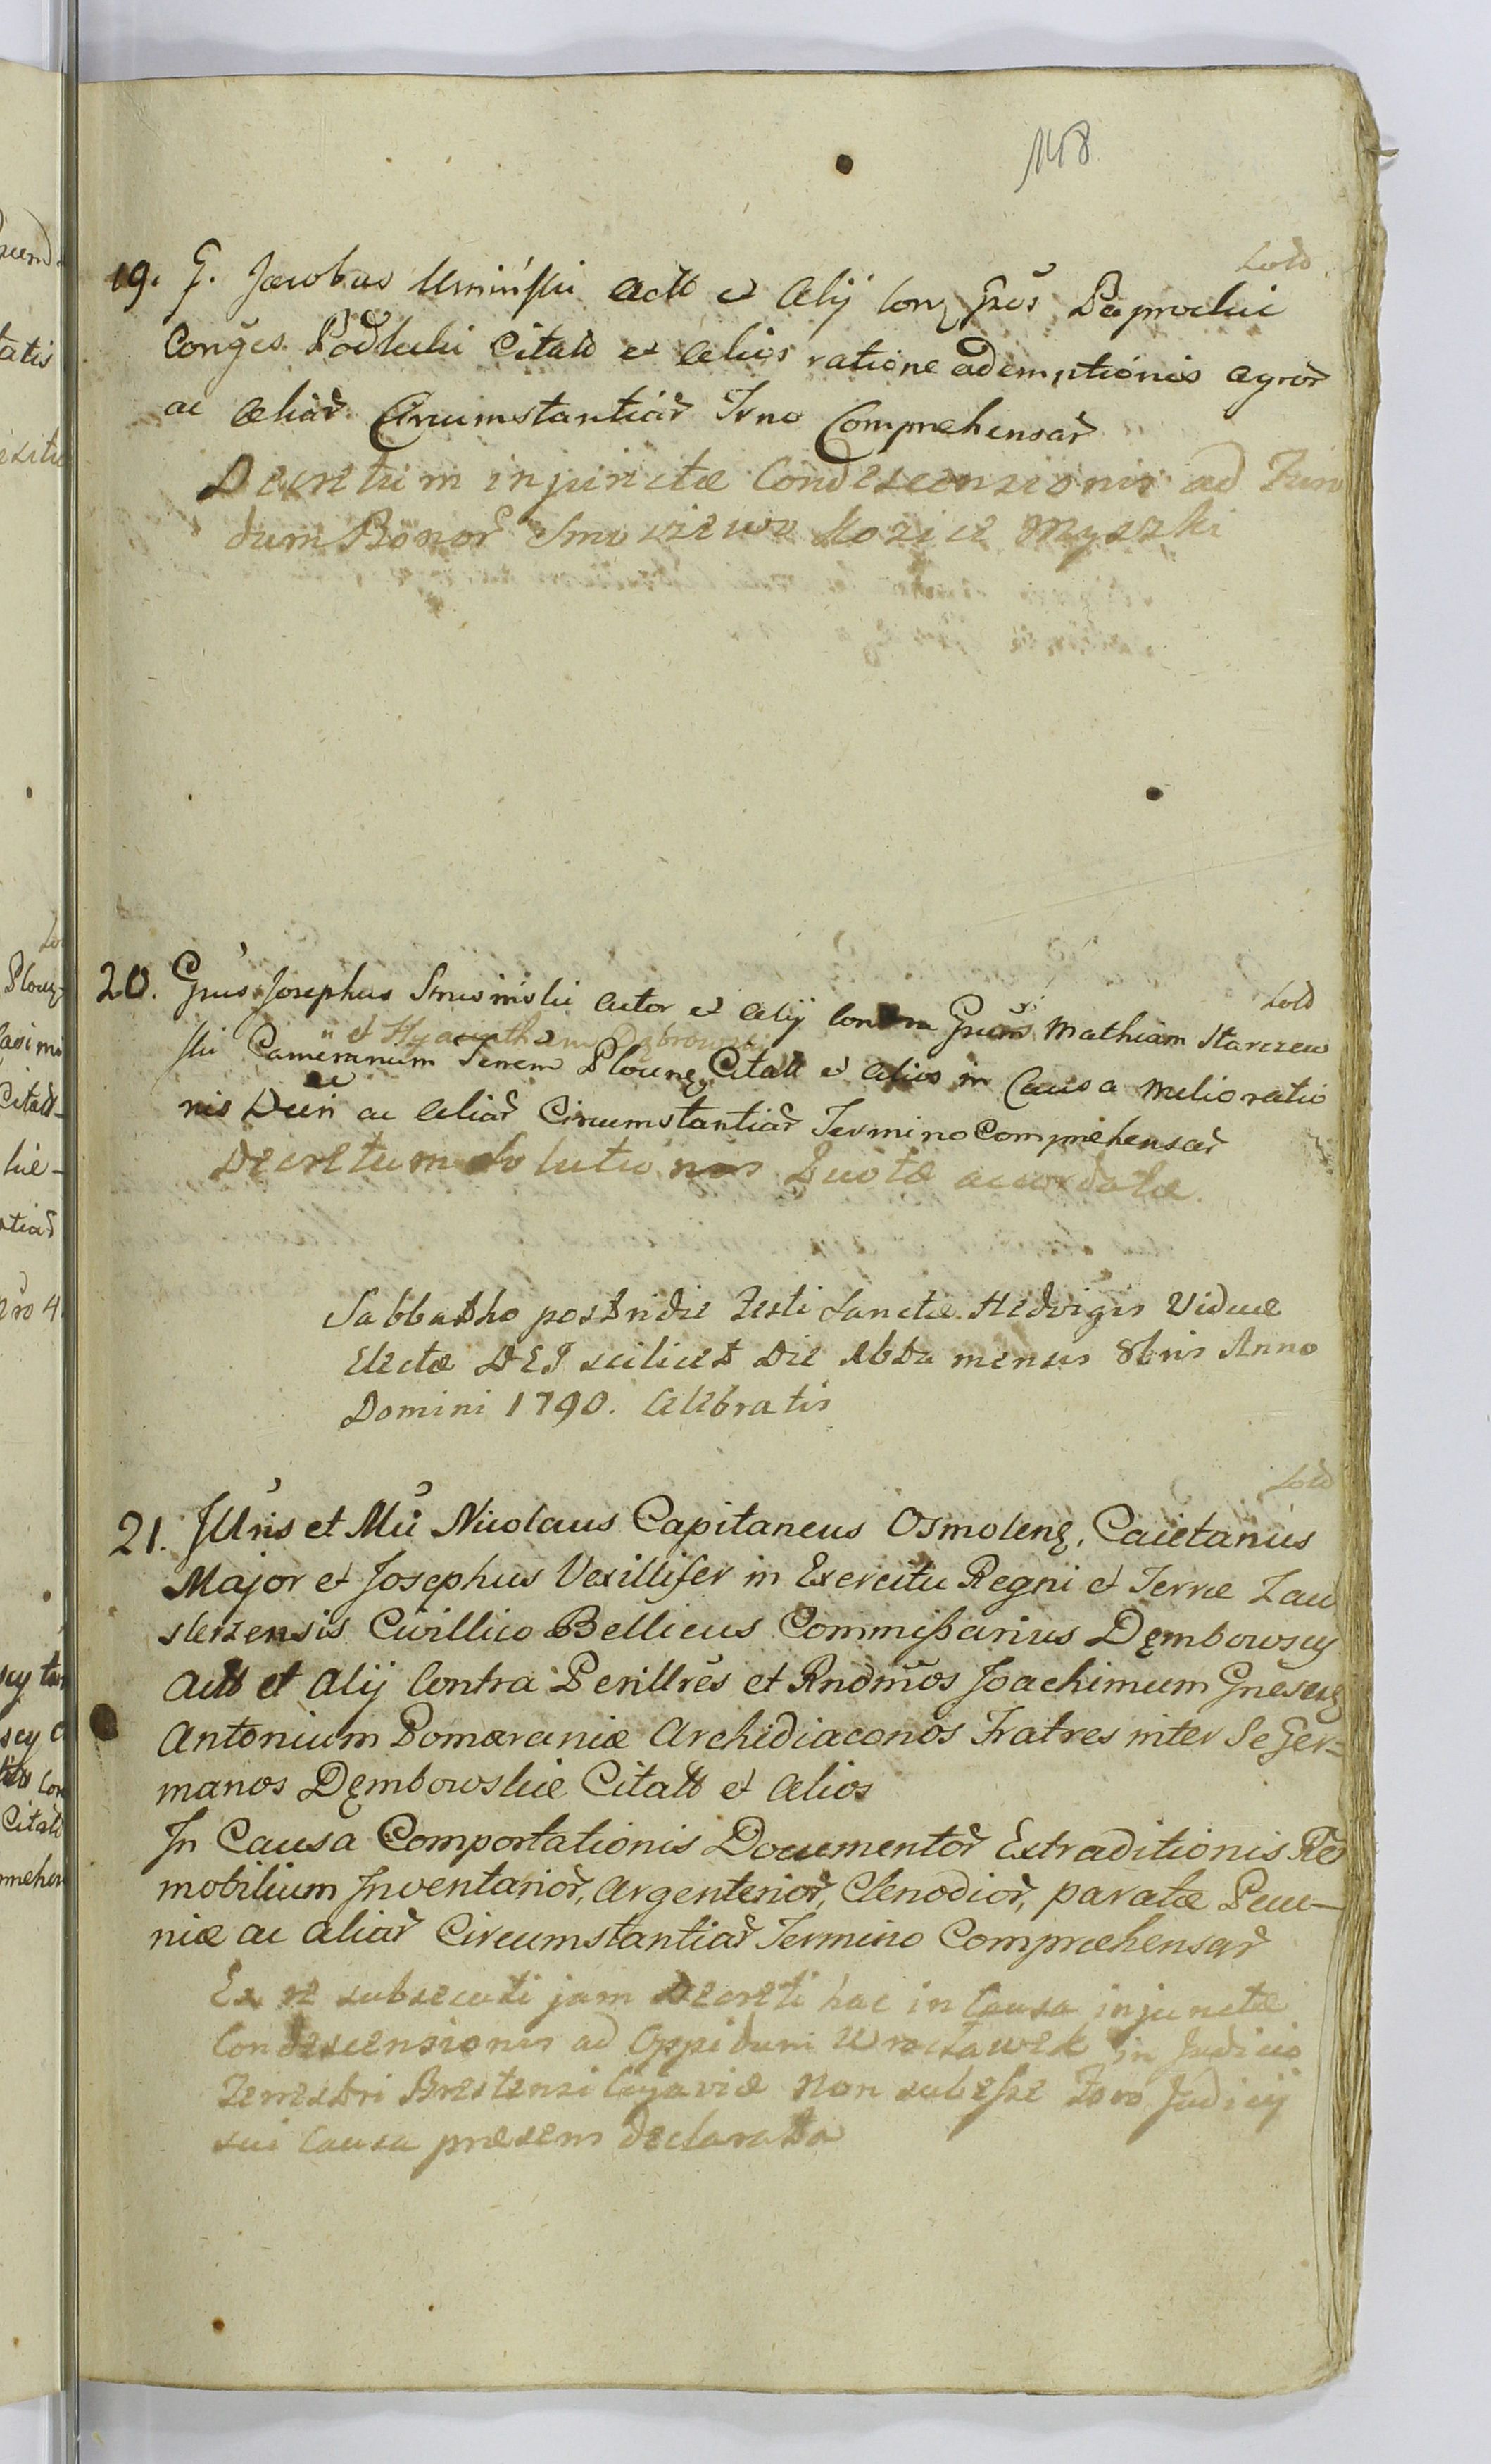 148
Sold
19. G. Jacobus Umiński Actt et Alij Conq Gsos Paprockie
Conges Podlecki Citatt et Alios ratione ademptionis agror
ac Aliar Circumstantiar Trno Comprehensar
Decretum injunctæ Condescensionis ad Fun
dum Bonor Myszki
Sold
20. Gnus Josephus Actor et Alij Gnum Mathiam Starczew
et Hyacinthum Dąbrowski
ski Camerarium Trrem Plocneg Citatt et Alios in Causa melioratio
nis ac Aliar Circumstantiar Termino Comprehensar
Decretum solutionis Quotæ accordatæ
Sabbatho postridie Festi Sanctæ Hedvigis Viduæ
Electæ DEI scilicet Die 16ta mensis 8bris Anno
Domini 1790. Celebratis
Sold
21. Illris et Mci Nicolaus Capitaneus Osmoleng, Caietanus
Major et Josephus Vexillifer in Exercitu Regni et Terræ Zaw
skrzensis Civillico Bellicus Commißarius Dęmbowscy
Actt et Alij Contra Perillres et Rndmos Joachimum Gneseng
Antonium Pomeraniæ Archidiaconos Fratres inter Se Ger=
manos Dęmbowskie Citatt et Alios
In Causa Comportationis Documentor Extraditionis Re
mobilium Inventarior, Argenterior, Clenodior, paratæ Pecu-
niæ ac Aliar Circumstantiar Termino Comprehensar
Ex re subsecuti jam Decreti hac in Causa injunctæ
Condescensionis ad Oppidum Wrocławek in Judicio
Terrestri Brestensi Cujaviæ non subeße Foro Judicij
sui Causa præsens declarata